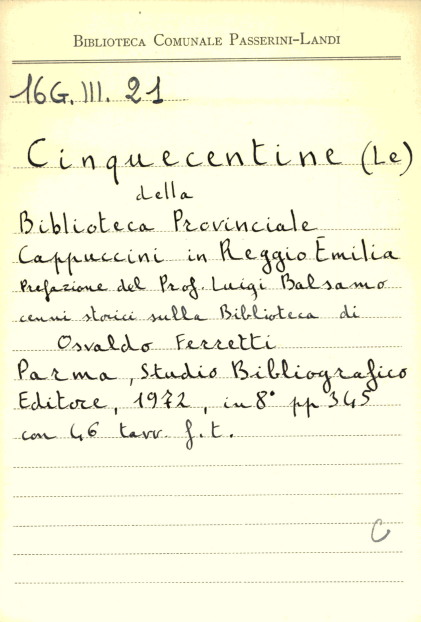 BIBLIOTECA COMUNALE PASSERINI-LANDI
16G. III. 21
Cinquecentine (Le)
della
Biblioteca Provinciale
Cappuccini in Reggio Emilia
Prefazione del Prof. Luigi Balsamo
cenni storici sulla Biblioteca di
Osvaldo Ferretti
Parma, Studio Bibliografico
Editore, 1972, in 8° pp 345
con 46 tavv. f.t.
C